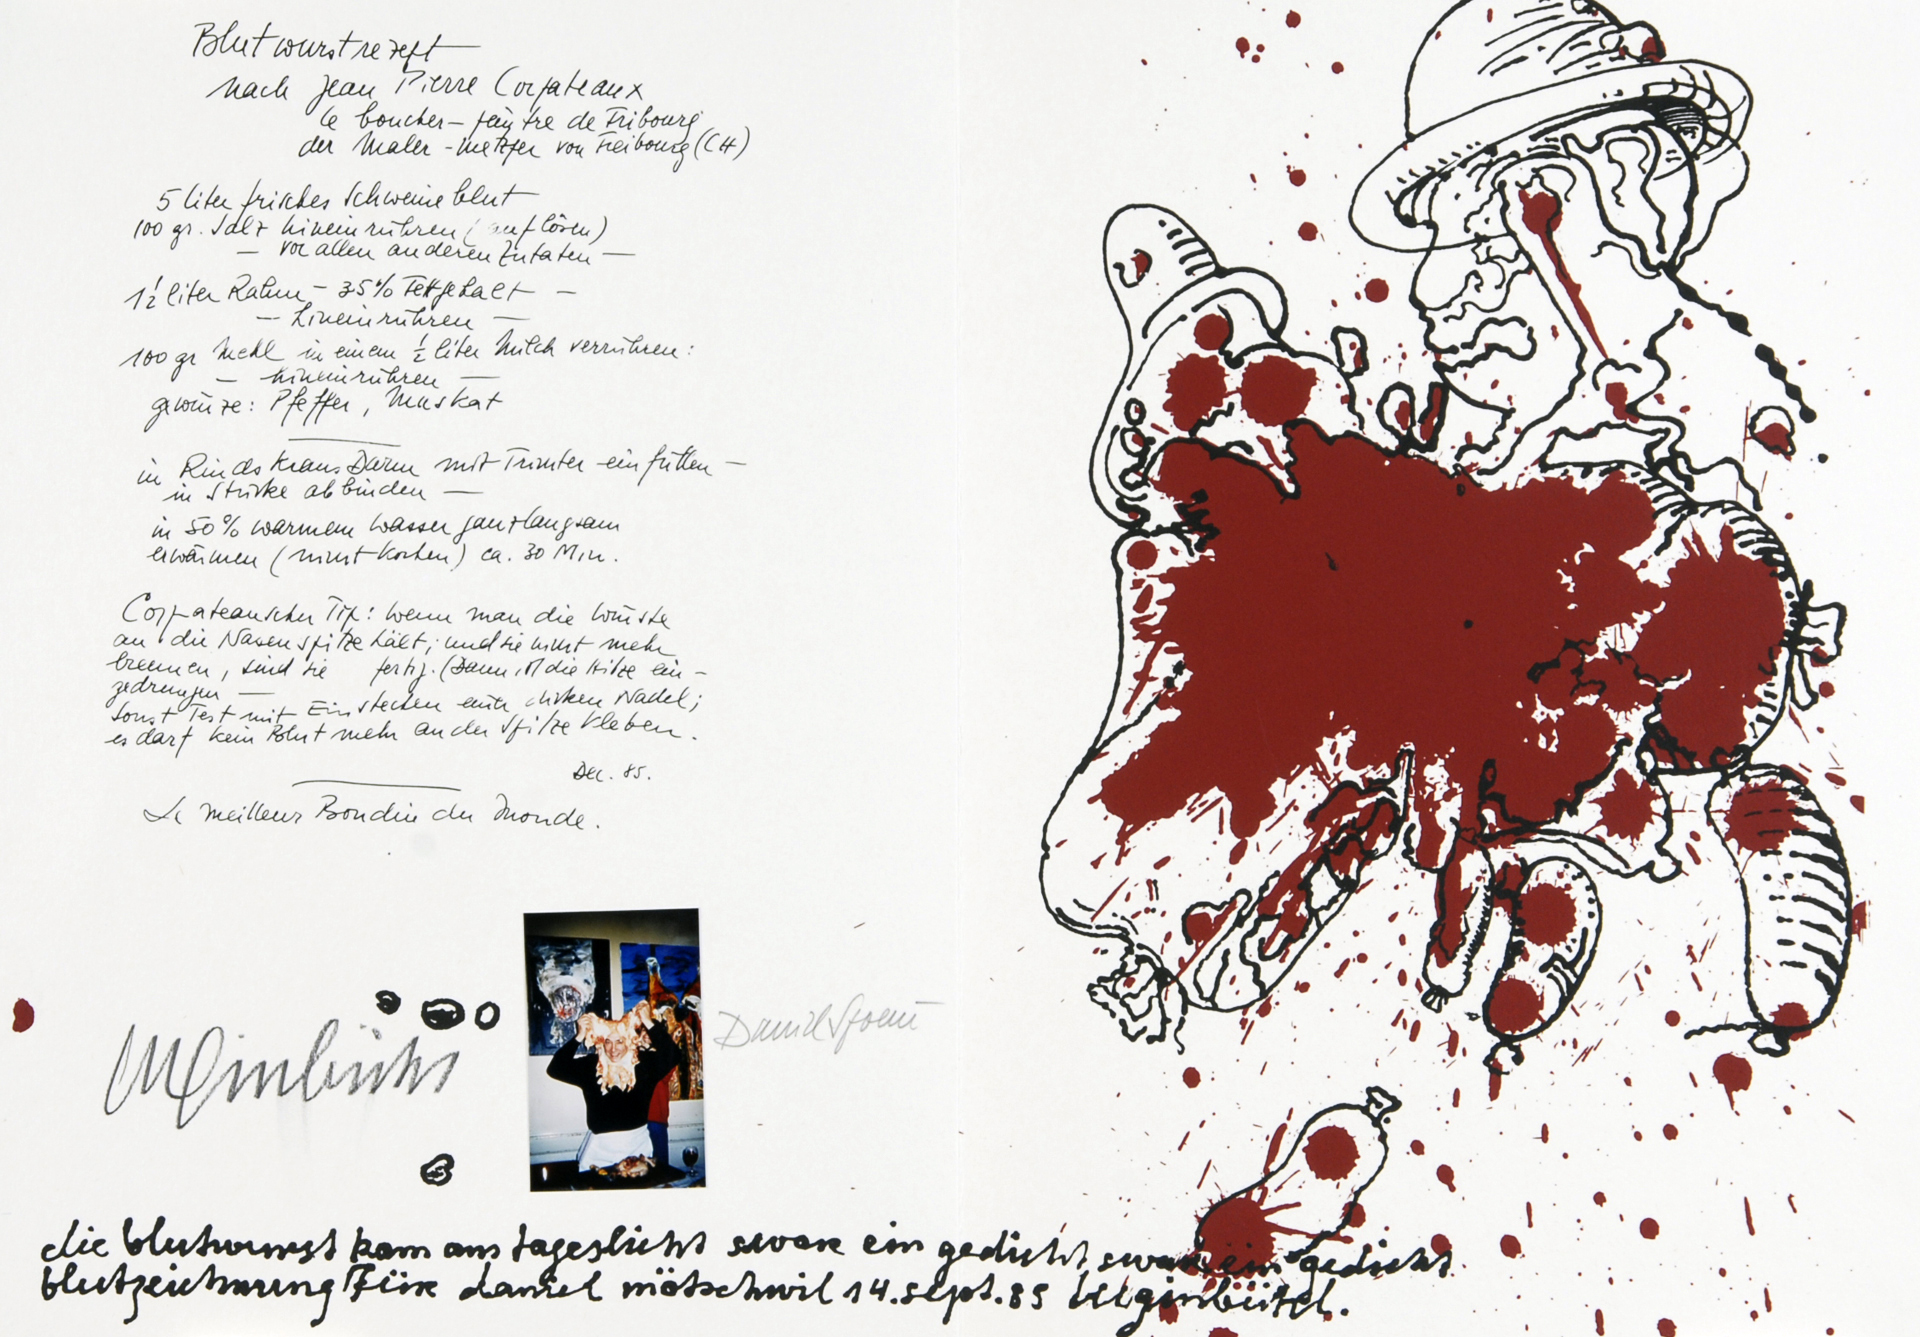 Blutwurstrezept
nach Jean Pierre Corpateaux
le boucher-peintre de Fribourg
der Maler-Metzger von Freibourg (CH)
5 liter frisches Schweineblut
100 gr. Salz hineinrühren (auflösen)
— vor allen anderen Zutaten —
1½ liter Rahm – 35% Fettgehalt —
— hineinrühren —
100 gr Mehl in einem ½ liter Milch verrühren:
— hineinrühren —
gewürze: Pfeffer, Muskat
in Rinds Krans Darm mit Trichter einfüllen —
in Stücke abbinden —
in 50% warmem Wasser ganz langsam
erwärmen (nicht kochen) ca. 30 Min.
Corpateauscher Tip: wenn man die Würste
an die Nasenspitze hält; und sie nicht mehr
brennen, sind sie fertig. (Dann ist die Hitze ein-
gedrungen —
sonst Test mit Einstechen einer dicken Nadel;
es darf kein Blut mehr an der Spitze kleben.
Dec. 85.
Le meilleur Boudin du Monde.
Daniel Spoerri
die blutwurst kam ans tageslicht swar ein gedicht swar ein gedicht
blutzeichnung Für daniel mötschwil 14.sept.85